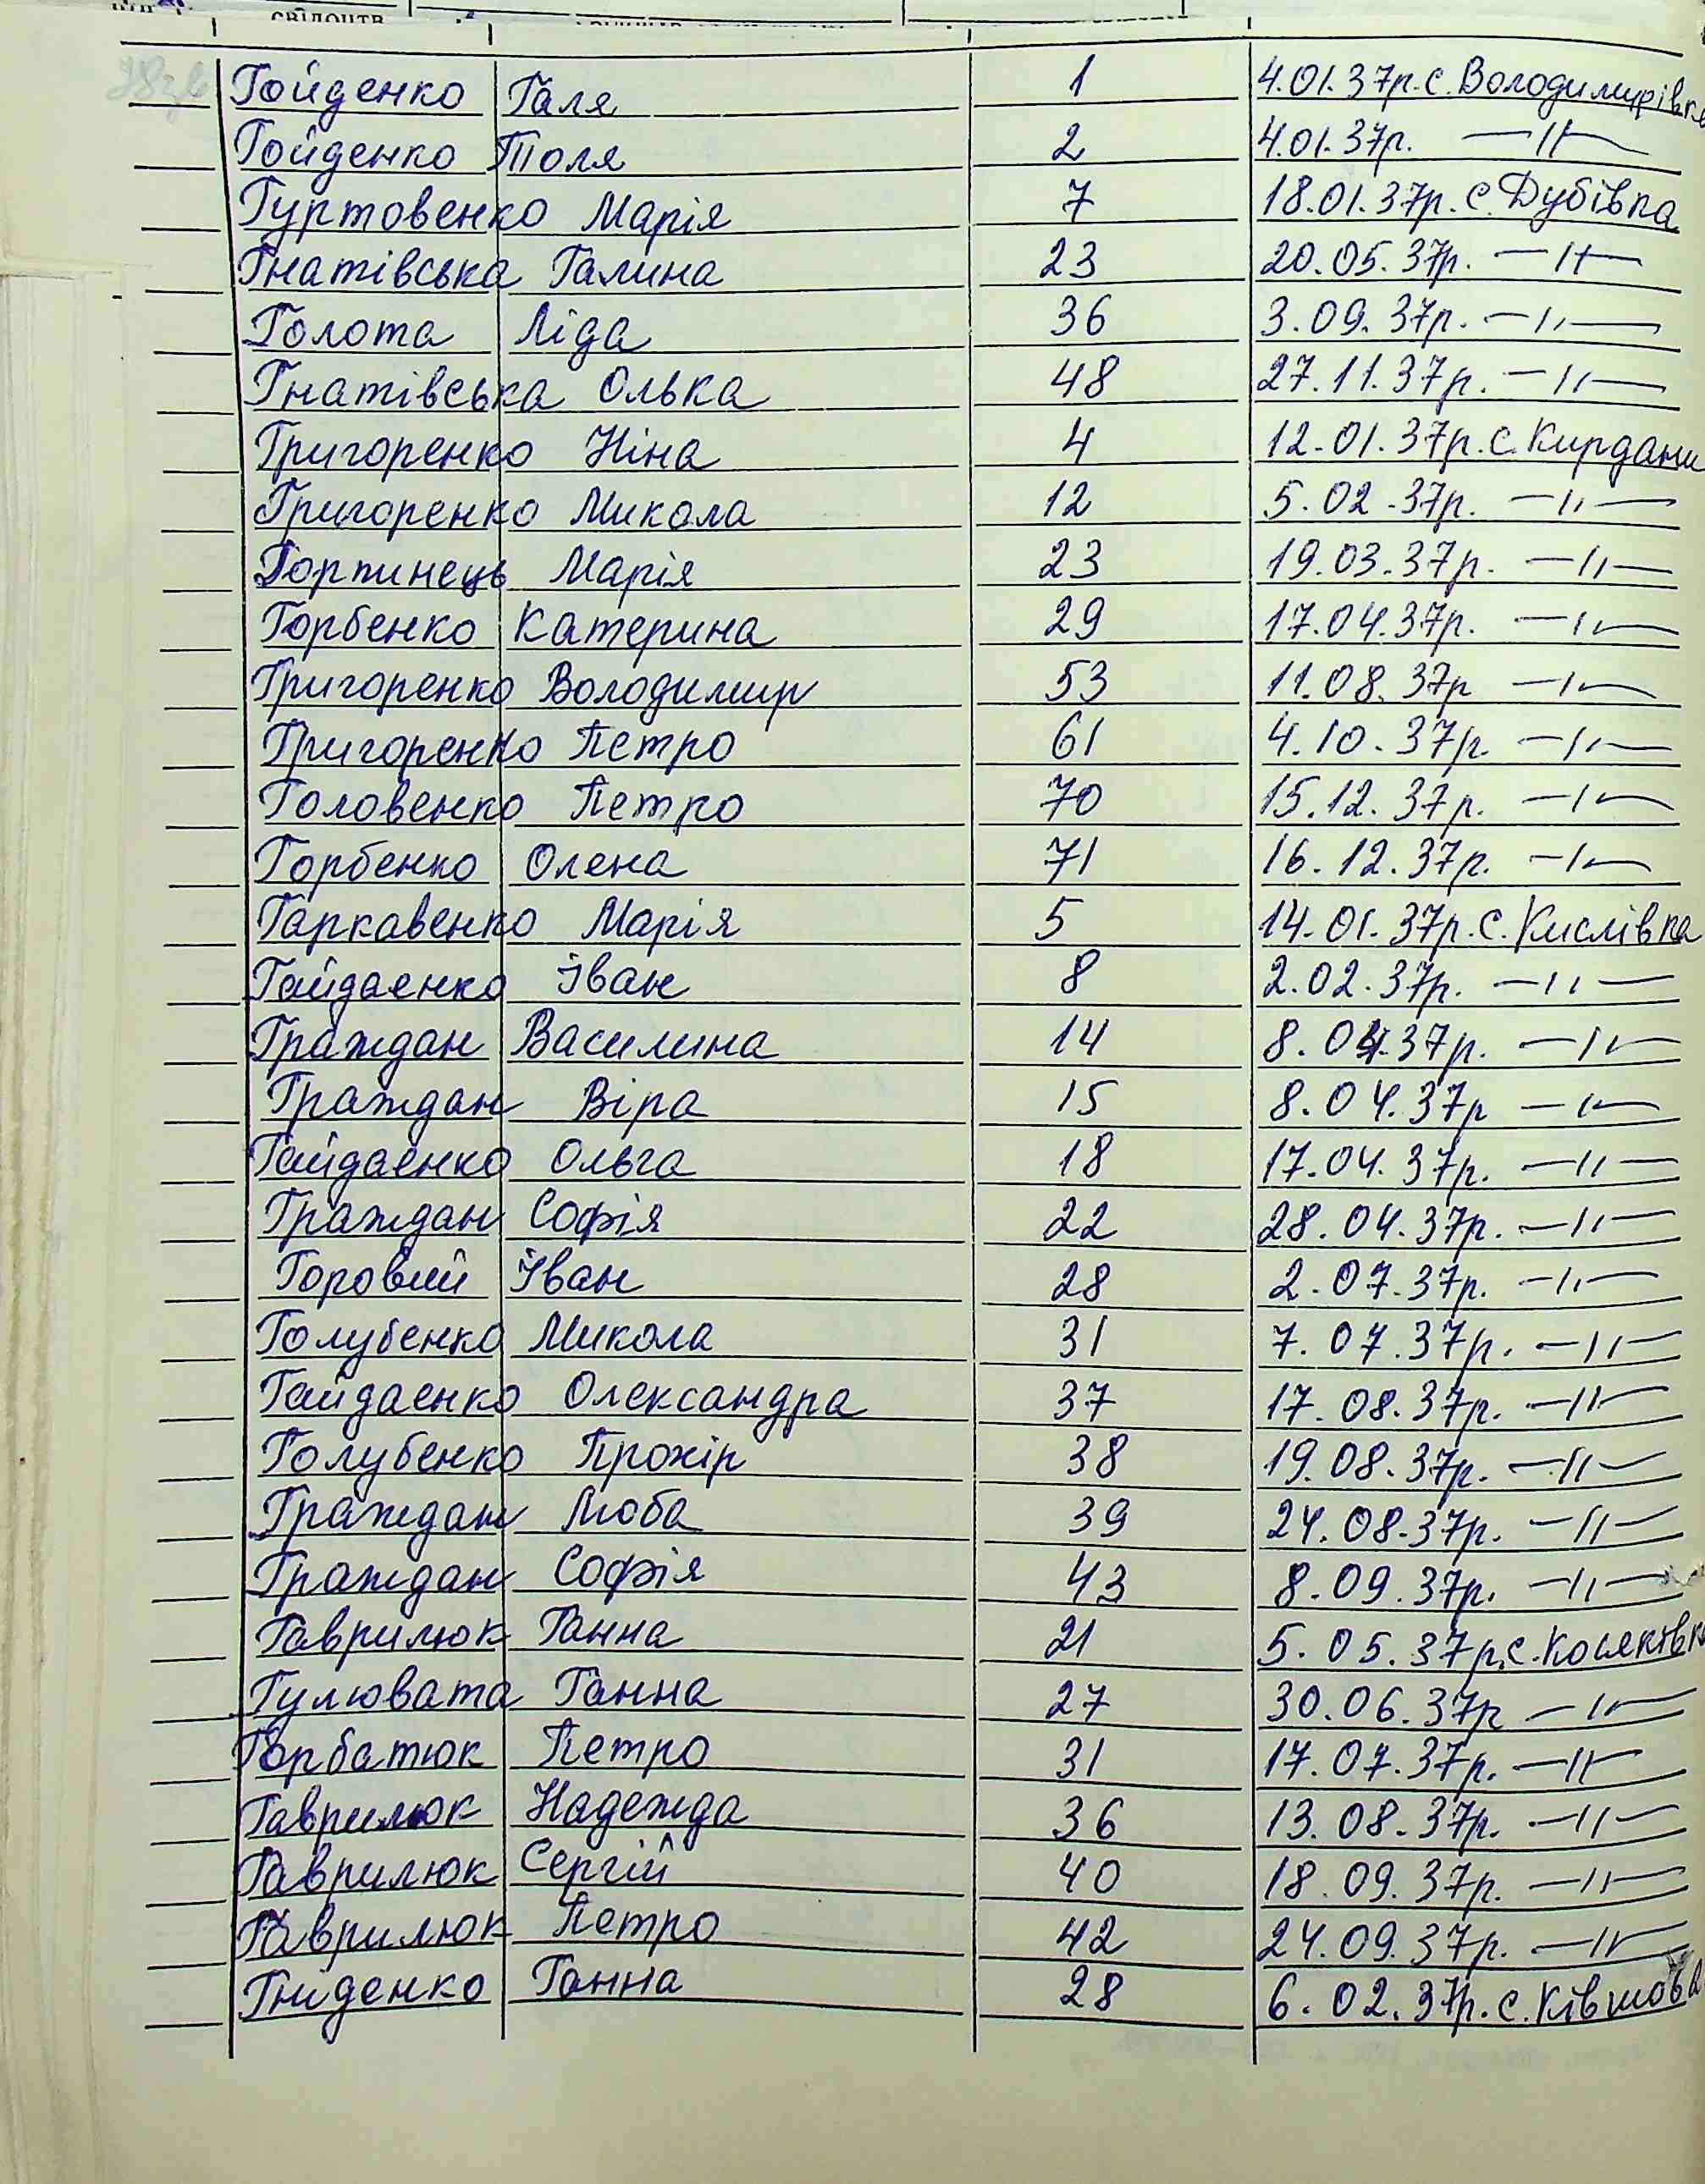 свідоцтв
Гойденко Галя 1 4.01.37р. с. Володимирівка
Гойденко Толя 2 4.01.37р. —//—
Гуртовенко Марія 7 18.01.37р. с. Дубівка
Гнатівська Галина 23 20.05.37р. —//—
Голота Ліда 36 3.09.37р. —//—
Гнатівська Олька 48 27.11.37р. —//—
Григоренко Ніна 4 12.01.37р. с. Кирдани
Григоренко Микола 12 5.02.37р. —//—
Горпинець Марія 23 19.03.37р. —//—
Горбенко Катерина 29 17.04.37р. —//—
Григоренко Володимир 53 11.08.37р —//—
Григоренко Петро 61 4.10.37р. —//—
Головенко Петро 70 15.12.37р. —//—
Горбенко Олена 71 16.12.37р. —//—
Гаркавенко Марія 5 14.01.37р. с. Кислівка
Гайдаенко Іван 8 2.02.37р. —//—
Граждан Василина 14 8.04.37р. —//—
Граждан Віра 15 8.04.37р —//—
Гайдаенко Ольга 18 17.04.37р. —//—
Граждан Софія 22 28.04.37р. —//—
Горовий Іван 28 2.07.37р. —//—
Голубенко Микола 31 7.07.37р. —//—
Гайдаенко Олександра 37 17.08.37р. —//—
Голубенко Прохір 38 19.08.37р. —//—
Граждан Люба 39 24.08.37р. —//—
Граждан Софія 43 8.09.37р. —//—
Гаврилюк Ганна 21 5.05.37р. с. Косяківка
Гулювата Ганна 27 30.06.37р —//—
Горбатюк Петро 31 17.07.37р. —//—
Гаврилюк Надежда 36 13.08.37р. —//—
Гаврилюк Сергій 40 18.09.37р. —//—
Гаврилюк Петро 42 24.09.37р. —//—
Гниденко Ганна 28 6.02.37р. с. Ківшова